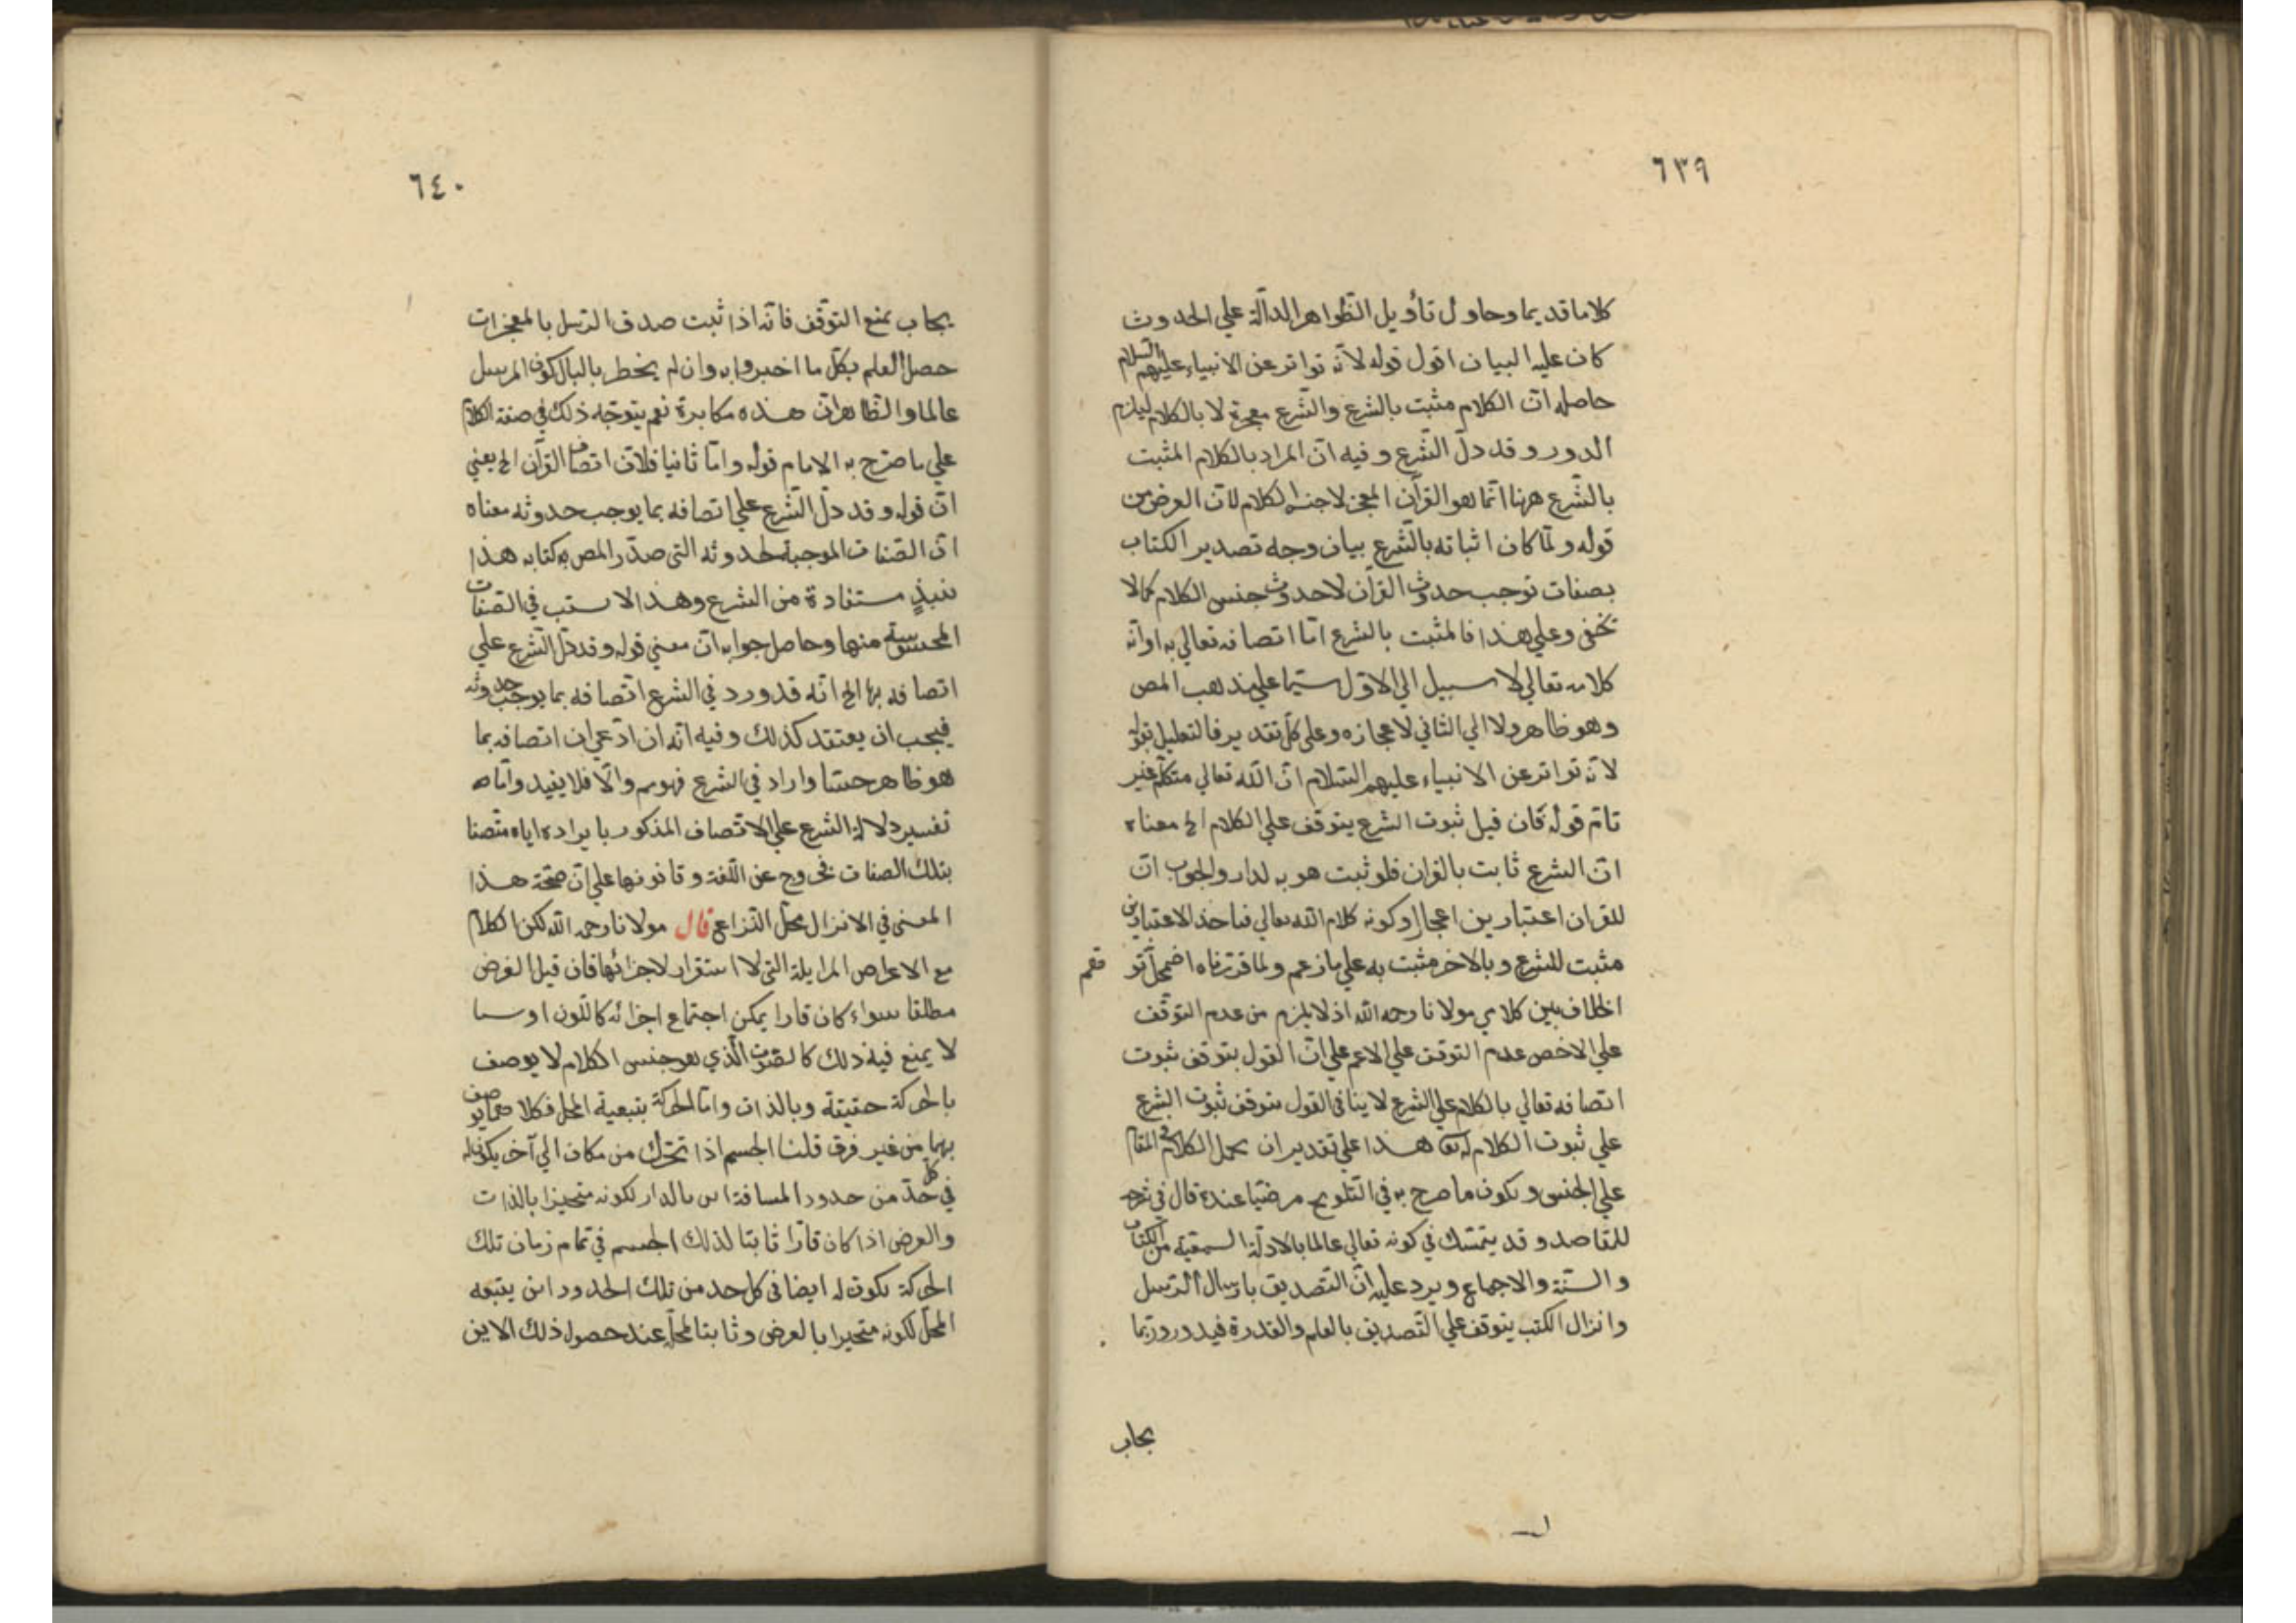 ٦٣٩
كلاما قديما وحاول تأويل الظواهر الدالّة علي الحدوث
كان عليه البيان اقول قوله لانّه تواتر عن الانبياء عليهم السلام
حاصله انّ الكلام مثبت بالشرع والشرع بمعجزة لا بالكلام ليلزم
الدور وقد دلّ الشّرع وفيه انّ المراد بالكلام المثبت
بالشّرع ههنا انّما هو القرآن المعجز لا جنس الكلام لانّ الغرض من
قوله ولمّا كان اثباته بالشّرع بيان وجه تصدير الكتاب
بصفات توجب حدوث القرآن لا حدوث جنس الكلام كما لا
يخفى وعلي هذا فالمثبت بالشرع امّا اتصافه تعالي به او انّه
كلامه تعالي لا سبيل الي الاوّل سيّما علي مذهب المص
وهو ظاهر ولا الي الثاني لاعجازه وعلي كلّ تقدير فالتعليل بقوله
لانّه تواتر عن الانبياء عليهم السّلام انّ اللّه تعالي متكلّم غير
تامّ قوله فان قيل ثبوت الشرع يتوقف علي الكلام الخ معناه
انّ الشرع ثابت بالقران فلو ثبت هو به لدار والجواب انّ
للقران اعتبارين اعجازه وكونه كلام اللّه تعالي فباحد الاعتبارين
مثبت للشرع وبالاخر مثبت به علي ما زعم ولما قرّرناه اضمحلّ توهم
الخلاف بين كلامي مولانا رحمه اللّه اذ لا يلزم من عدم التوقّف
علي الاخص عدم التوقف علي الاعم علي انّ القول بتوقف ثبوت
اتصافه تعالي بالكلام علي الشرع لا ينافي القول بتوقف ثبوت الشرع
علي ثبوت الكلام له هذا علي تقدير ان يحمل الكلام في المقام
علي الجنس ويكون ما صرح به في التّلويح مرضيّا عنده قال في شرحه
للمقاصد وقد يتمسّك في كونه تعالي عالما بالادلّة السمعيّة من الكتاب
والسنّة والاجماع ويرد عليه انّ التّصديق بارسال الرّسل
وانزال الكتب يتوقف علي التّصديق بالعلم والقدرة فيدور وربّما
يجاب
٦٤٠
يجاب بمنع التوقّف فانّه اذا ثبت صدق الرّسل بالمعجزات
حصل العلم بكلّ ما اخبروا به وان لم يخطر بالبال كون المرسل
عالما والظّاهر انّ هذه مكابرة نعم يتوجّه ذلك في صفة الكلام
علي ما صرّح به الامام قوله وامّا ثانيا فلانّ اتصاف القرآن الخ يعني
انّ قوله وقد دلّ الشّرع علي اتصافه بما يوجب حدوثه معناه
انّ الصّفات الموجبة لحدوثه التى صدّر المص به كتابه هذا
مستفادة من الشرع وهذا لا يستب في الصّفات
المحسوسة منها وحاصل جوابه انّ معني قوله وقد دلّ الشّرع علي
اتصافه بها الخ انّه قد ورد في الشرع اتّصافه بما يوجب حدوثه
فيجب ان يعتقد كذلك وفيه انّه ان ادّعي ان اتصافه بما
هو ظاهر حسّا وارد في الشرع فهو مم والّا فلا يفيد وامّا
تفسير دلالة الشرع علي الاتّصاف المذكور بايراده اياه متّصفا
بتلك الصفات فخروج عن اللّغة وقانونها علي انّ صحّة هذا
المعنى في الانزال محلّ النّزاع قال مولانا رحمه اللّه لكن الكلام
مع الاعراض المزايلة التي لا استقرار لاجزائها فان قيل العرض
مطلقا سواء كان قارا يمكن اجتماع اجزائه كاللّون او سيالا
لا يمنع فيه ذلك كالصّوت الّذي هو جنس الكلام لا يوصف
بالحركة حقيقة وبالذات وامّا الحركة بتبعية المحل فكلاهما يوصف
بهما من غير فرق قلنا الجسم اذا تحرّك من مكان الي آخر يكون له
في كل حدّ من حدود المسافة اين بالدار لكونه متحيّزا بالذات
والعرض اذا كان قارّا ثابتا لذلك الجسم في تمام زمان تلك
الحركة يكون له ايضا في كل حد من تلك الحدود اين يتبعه
المحلّ لكونه متحيزا بالعرض وثابتا لمحلّه عند حصول ذلك الاين